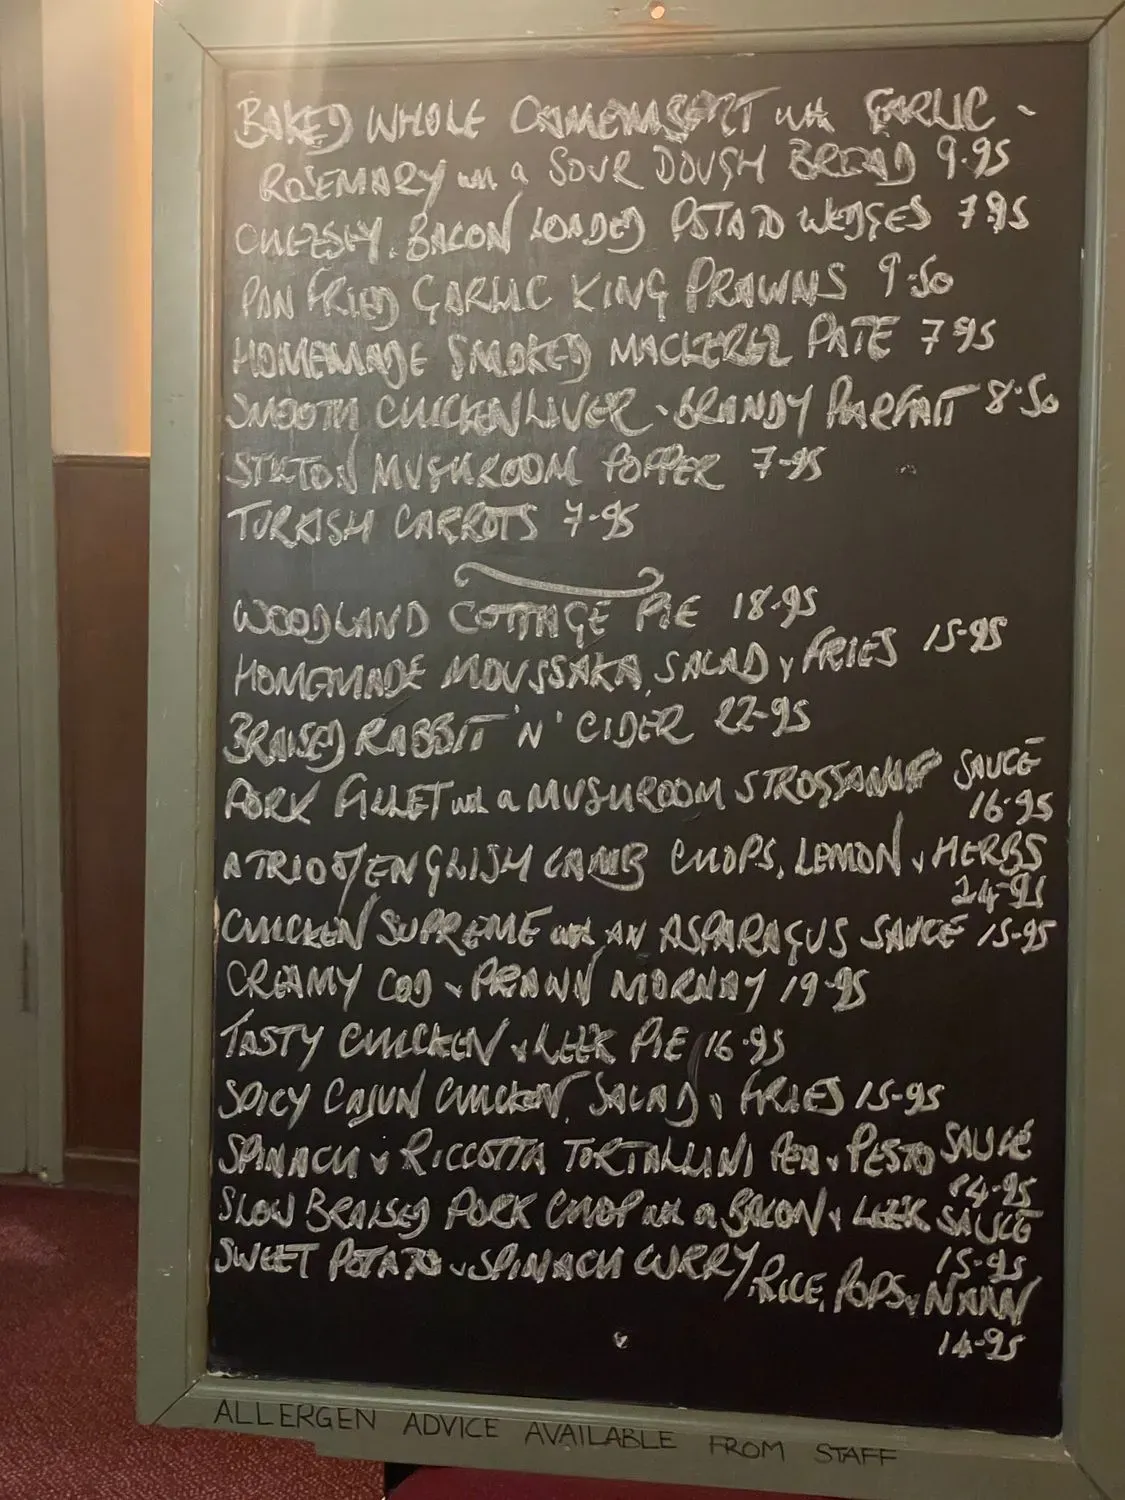 BAKED WHOLE CAMEMBERT with GARLIC -
ROSEMARY with a SOUR DOUGH BREAD 9.95
CHEESEY, BACON LOADED POTATO WEDGES 7.95
PAN FRIED GARLIC KING PRAWNS 9.50
HOMEMADE SMOKED MACKEREL PATE 7.95
SMOOTH CHICKEN LIVER - BRANDY PARFAIT 8.50
STILTON MUSHROOM POPPER 7-95
TURKISH CARROTS 7-95
WOODLAND COTTAGE PIE 18-95
HOMEMADE MOUSSAKA, SALAD, FRIES 15-95
BRAISED RABBIT 'N' CIDER 22-95
PORK FILLET with a MUSHROOM STROGGANOFF SAUCE
16.95
A TRIO of ENGLISH LAMB CHOPS, LEMON, HERBS
24-95
CHICKEN SUPREME with AN ASPARAGUS SAUCE 15-95
CREAMY COD - PRAWN MORNAY 19-95
TASTY CHICKEN & LEEK PIE 16.95
SPICY CAJUN CHICKEN, SALAD, FRIES 15-95
SPINACH & RICCOTTA TORTALLINI PEA & PESTO SAUCE
14-95
SLOW BRAISED PORK CHOP with a BACON & LEEK SAUCE
15-95
SWEET POTATO & SPINACH CURRY, RICE, POPS & NAAN
14-95
ALLERGEN ADVICE AVAILABLE FROM STAFF